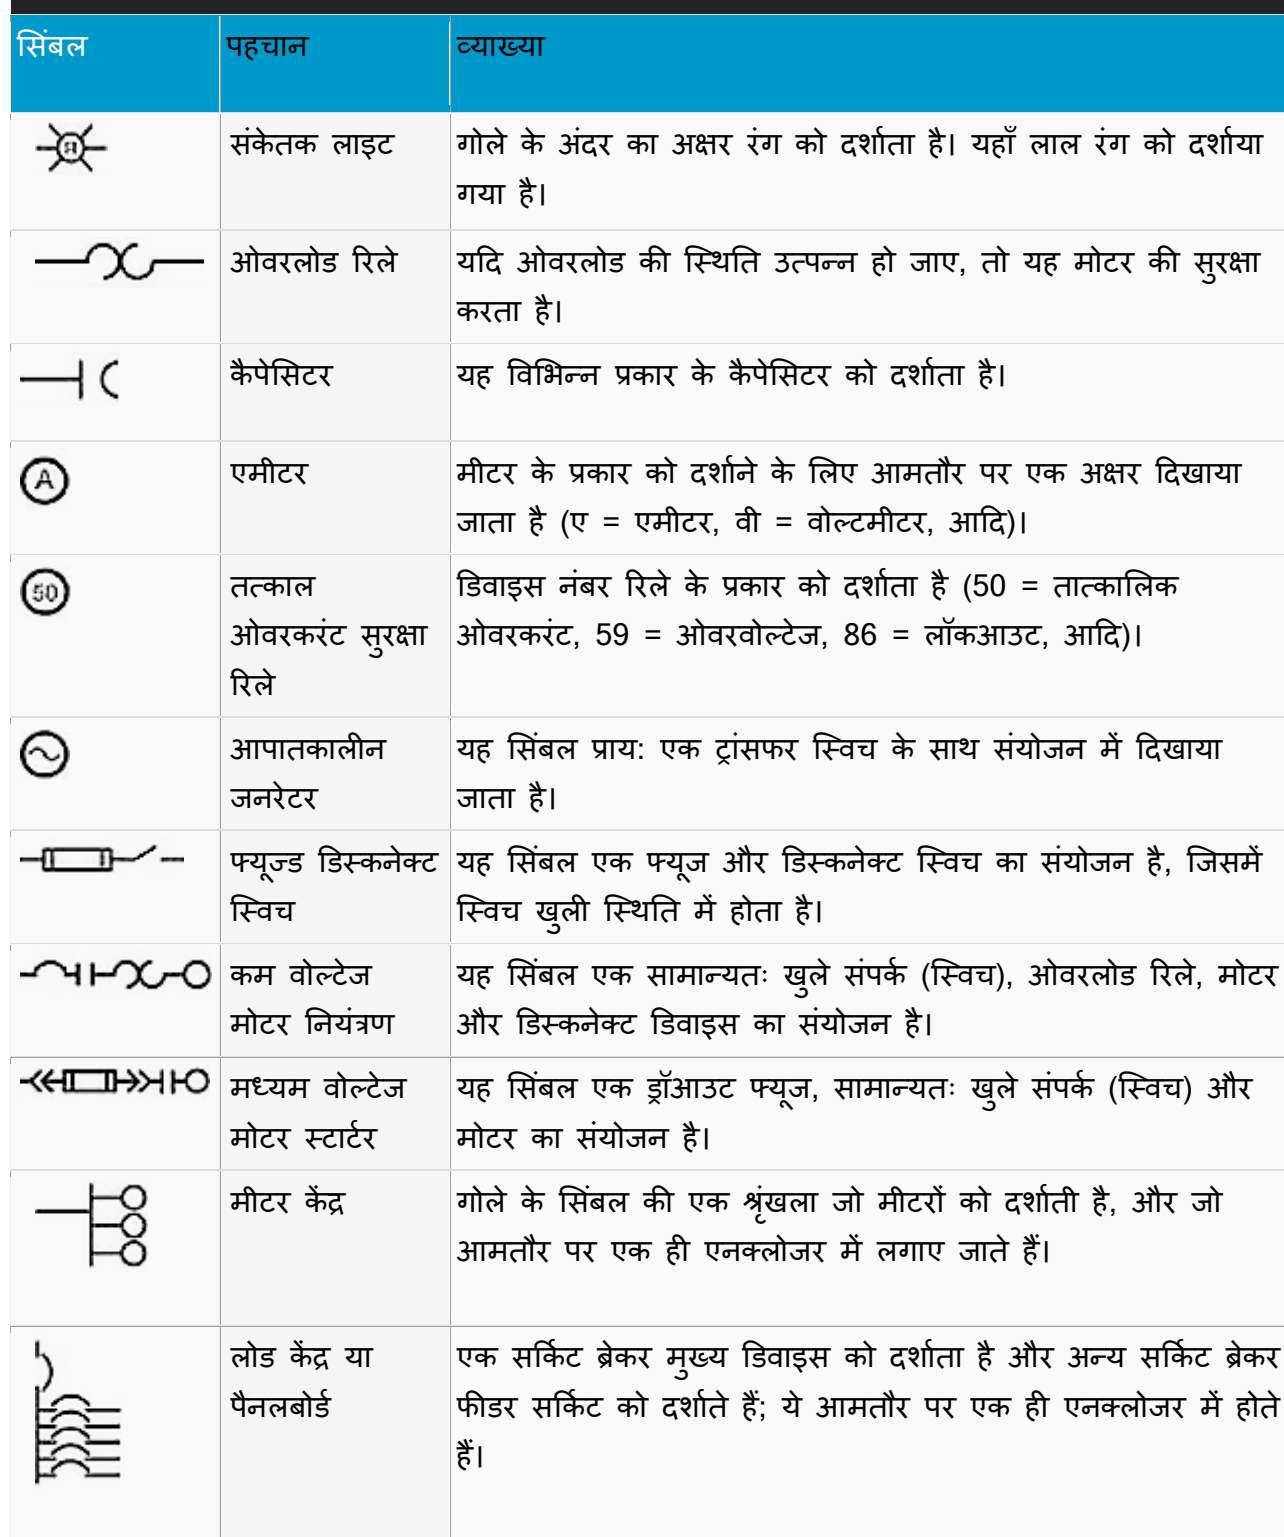 सिंबल पहचान व्याख्या
R संकेतक लाइट गोले के अंदर का अक्षर रंग को दर्शाता है। यहाँ लाल रंग को दर्शाया
गया है।
ओवरलोड रिले यदि ओवरलोड की स्थिति उत्पन्न हो जाए, तो यह मोटर की सुरक्षा
करता है।
कैपेसिटर यह विभिन्न प्रकार के कैपेसिटर को दर्शाता है।
A एमीटर मीटर के प्रकार को दर्शाने के लिए आमतौर पर एक अक्षर दिखाया
जाता है (ए = एमीटर, वी = वोल्टमीटर, आदि)।
50 तत्काल डिवाइस नंबर रिले के प्रकार को दर्शाता है (50 = तात्कालिक
ओवरकरंट सुरक्षा ओवरकरंट, 59 = ओवरवोल्टेज, 86 = लॉकआउट, आदि)।
रिले
आपातकालीन यह सिंबल प्राय: एक ट्रांसफर स्विच के साथ संयोजन में दिखाया
जनरेटर जाता है।
फ्यूज्ड डिस्कनेक्ट यह सिंबल एक फ्यूज और डिस्कनेक्ट स्विच का संयोजन है, जिसमें
स्विच स्विच खुली स्थिति में होता है।
कम वोल्टेज यह सिंबल एक सामान्यतः खुले संपर्क (स्विच), ओवरलोड रिले, मोटर
मोटर नियंत्रण और डिस्कनेक्ट डिवाइस का संयोजन है।
मध्यम वोल्टेज यह सिंबल एक ड्रॉआउट फ्यूज, सामान्यतः खुले संपर्क (स्विच) और
मोटर स्टार्टर मोटर का संयोजन है।
मीटर केंद्र गोले के सिंबल की एक श्रृंखला जो मीटरों को दर्शाती है, और जो
आमतौर पर एक ही एनक्लोजर में लगाए जाते हैं।
लोड केंद्र या एक सर्किट ब्रेकर मुख्य डिवाइस को दर्शाता है और अन्य सर्किट ब्रेकर
पैनलबोर्ड फीडर सर्किट को दर्शाते हैं; ये आमतौर पर एक ही एनक्लोजर में होते
हैं।